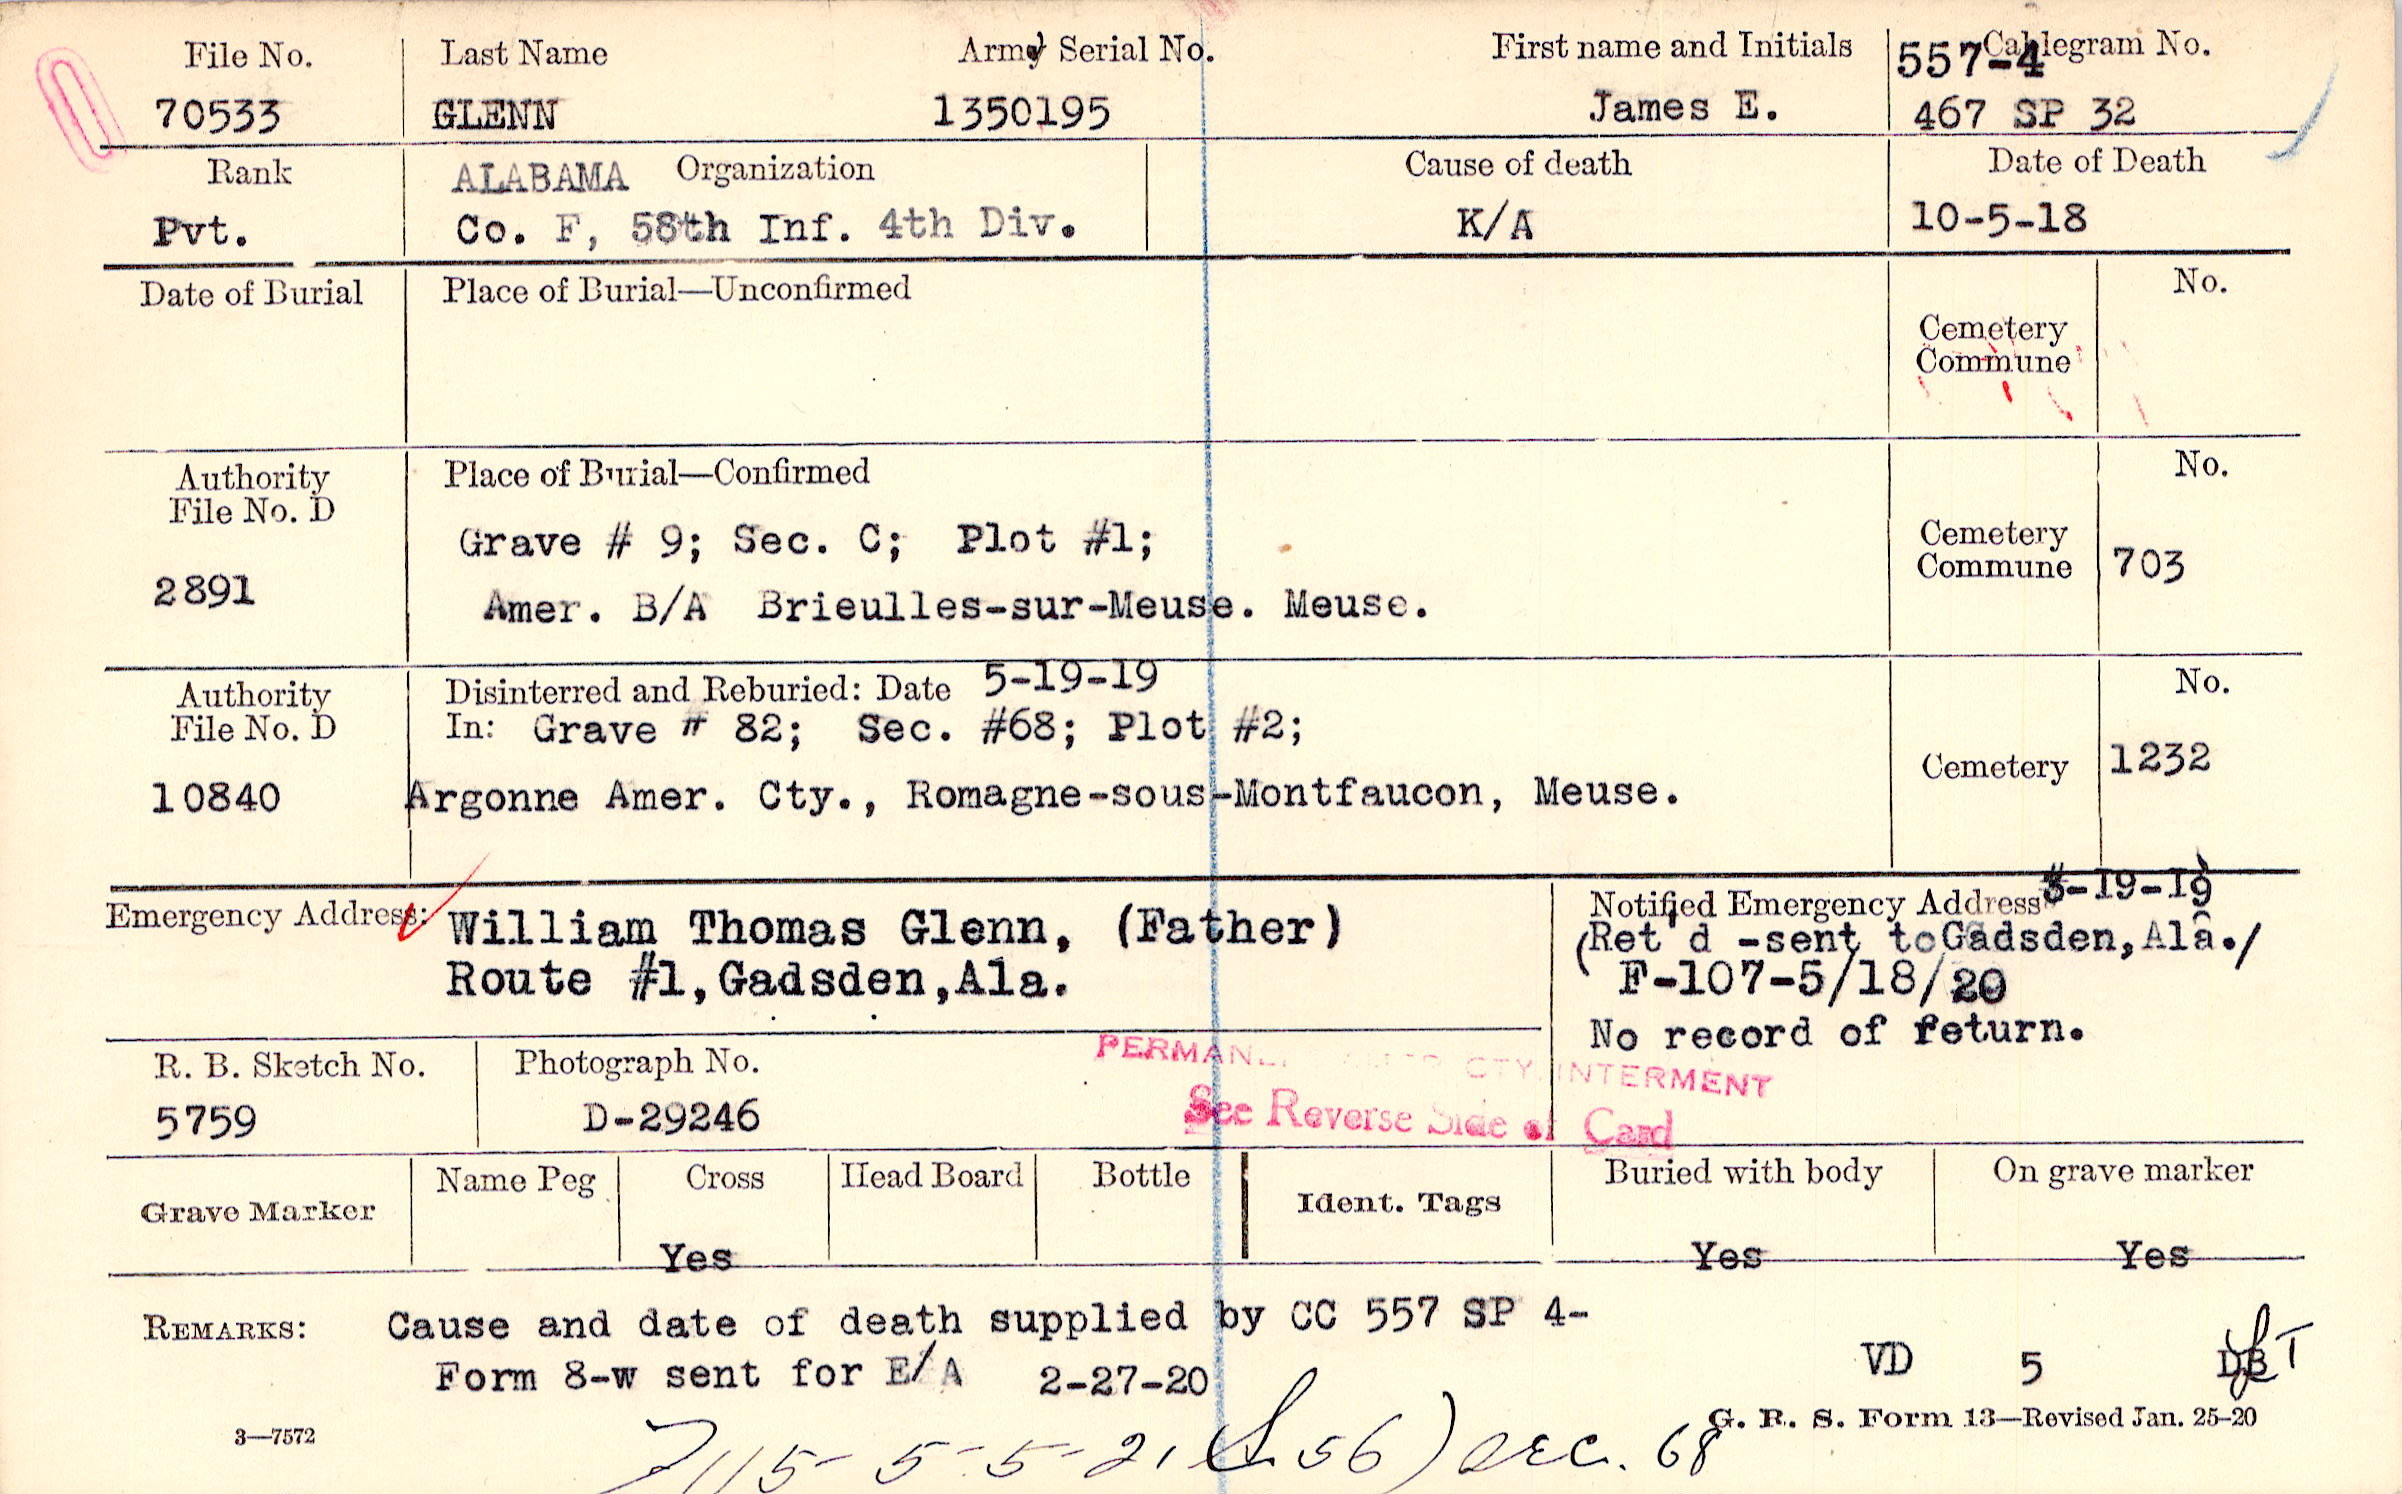 File No. Last Name Army Serial No. First name and Initials 557-4 Cablegram No.
70533 GLENN 1350195 James E. 467 SP 32
Rank ALABAMA Organization Cause of death Date of Death
Pvt. Co. F, 58th Inf. 4th Div. K/A 10-5-18
Date of Burial Place of Burial—Unconfirmed No.
Cemetery
Commune
Authority Place of Burial—Confirmed No.
File No. D
Grave # 9; Sec. C; Plot #1; Cemetery
2891 Commune 703
Amer. B/A Brieulles-sur-Meuse. Meuse.
Authority Disinterred and Reburied: Date 5-19-19 No.
File No. D In: Grave # 82; Sec. #68; Plot #2;
Cemetery 1232
10840 Argonne Amer. Cty., Romagne-sous-Montfaucon, Meuse.
Emergency Address: William Thomas Glenn, (Father)
Route #1,Gadsden,Ala.
Notified Emergency Address -19-19
(Ret'd -sent to Gadsden,Ala./
F-107-5/18/20
No record of return.
R. B. Sketch No. Photograph No.
5759 D-29246
CTY. INTERMENT
See Reverse Side of Card
Grave Marker Name Peg Cross Head Board Bottle Ident. Tags Buried with body On grave marker
Yes Yes Yes
REMARKS: Cause and date of death supplied by CC 557 SP 4-
Form 8-w sent for E/A 2-27-20 VD 5
3—7572 G. R. S. Form 13—Revised Jan. 25-20
115- 5-5-21 56) Dec. 68